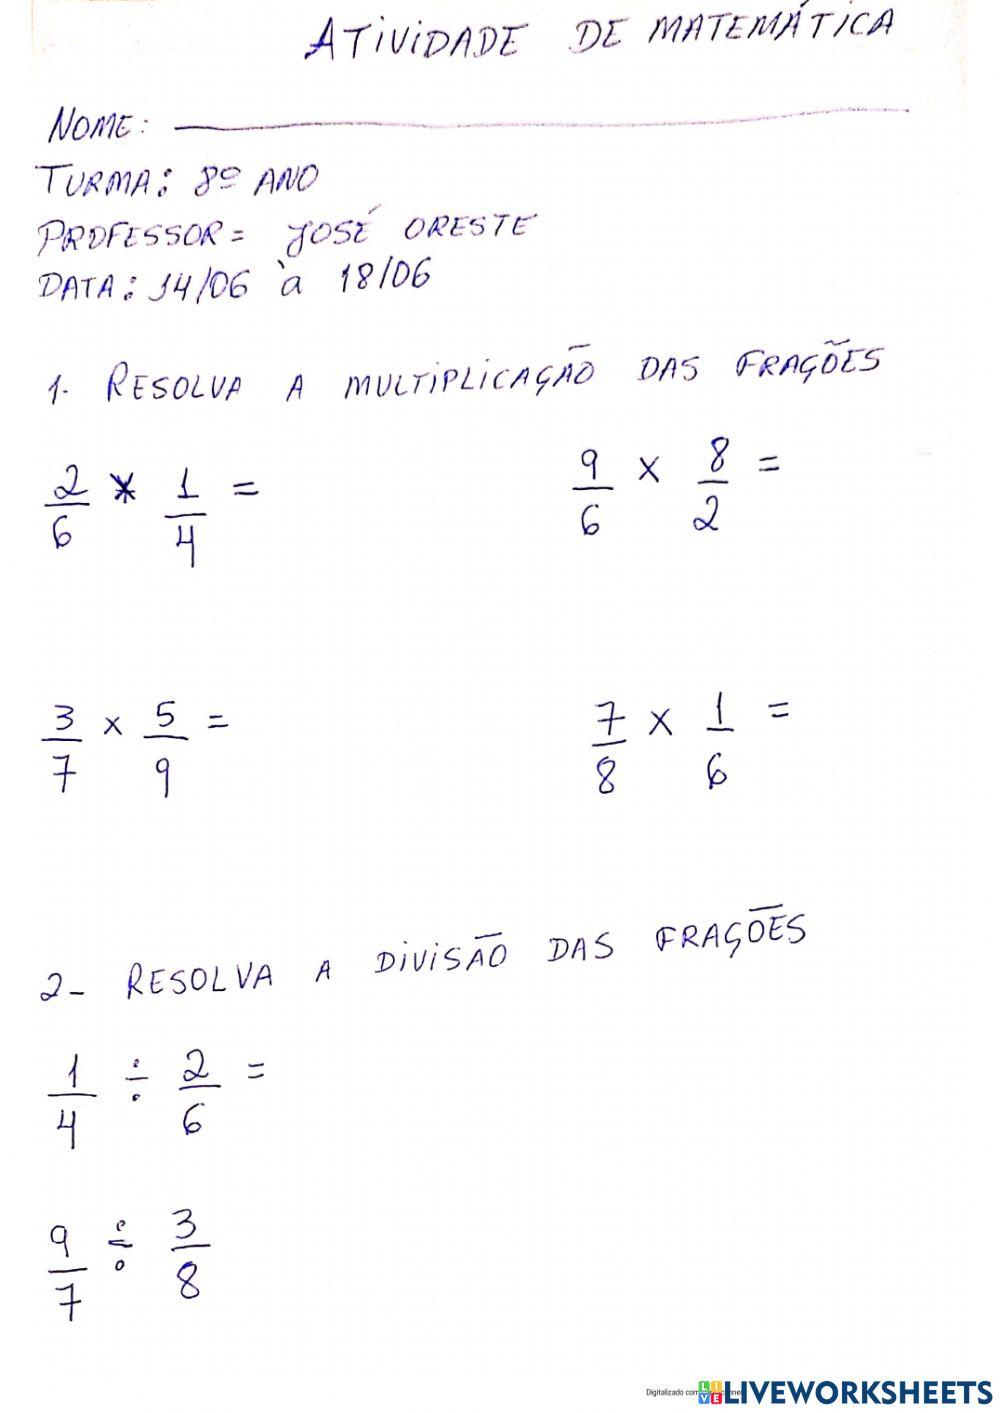 ATIVIDADE DE MATEMÁTICA
NOME:
TURMA: 8º ANO
PROFESSOR= JOSÉ ORESTE
DATA: 14/06 à 18/06
1- RESOLVA A MULTIPLICAÇÃO DAS FRAÇÕES
2/6 × 1/4 = 9/6 × 8/2 =
3/7 × 5/9 = 7/8 × 1/6 =
2- RESOLVA A DIVISÃO DAS FRAÇÕES
1/4 ÷ 2/6 =
9/7 ÷ 3/8
Digitalizado com
LIVEWORKSHEETS